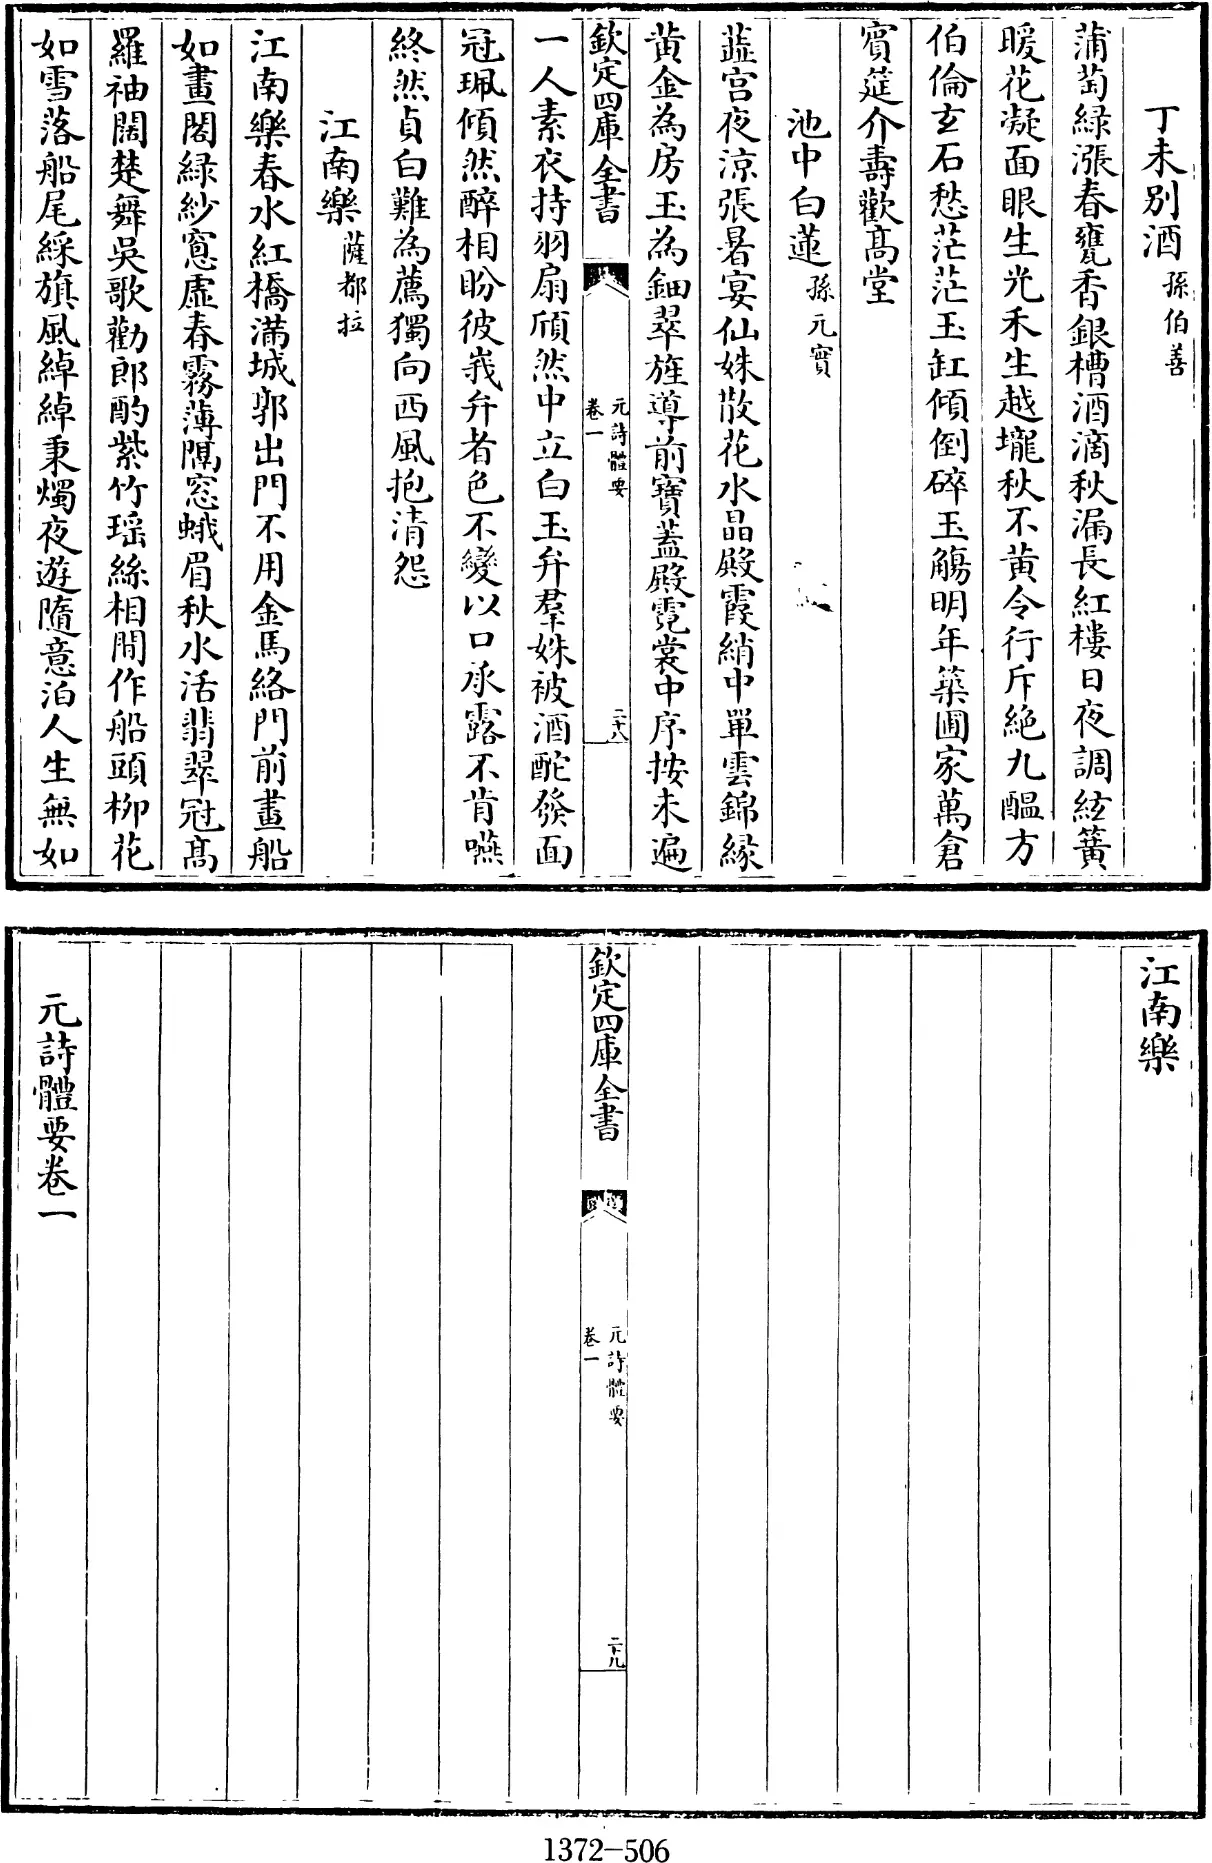 丁未别酒孫伯善
蒲萄綠漲春甕香銀槽酒滴秋漏長紅樓日夜調絃簧
暖花凝面眼生光禾生越壠秋不黄令行斥絶九醖方
伯倫玄石愁茫茫玉缸傾倒碎玉觴明年築圃家萬倉
賔筵介壽歡髙堂
池中白蓮孫元實
蘂宫夜涼張暑宴仙姝散花水晶殿霞綃中單雲錦縁
黄金為房玉為鈿翠旌導前寶蓋殿霓裳中序按未遍
欽定四庫全書
元詩體要
卷一
二十八
一人素衣持羽扇頎然中立白玉弁羣姝被酒酡發面
冠珮傾然醉相盼彼峩弁者色不變以口承露不肯嚥
終然貞白難為薦獨向西風抱清怨
江南樂薩都拉
江南樂春水紅橋滿城郭出門不用金馬絡門前畫船
如畫閣緑紗窻虚春霧薄隔窓蛾眉秋水活翡翠冠髙
羅袖闊楚舞吳歌勸郎酌紫竹瑶絲相間作船頭栁花
如雪落船尾綵旗風綽綽秉燭夜遊隨意泊人生無如
江南樂
欽定四庫全書
元詩體要
卷一
二十九
元詩體要卷一
1372-506